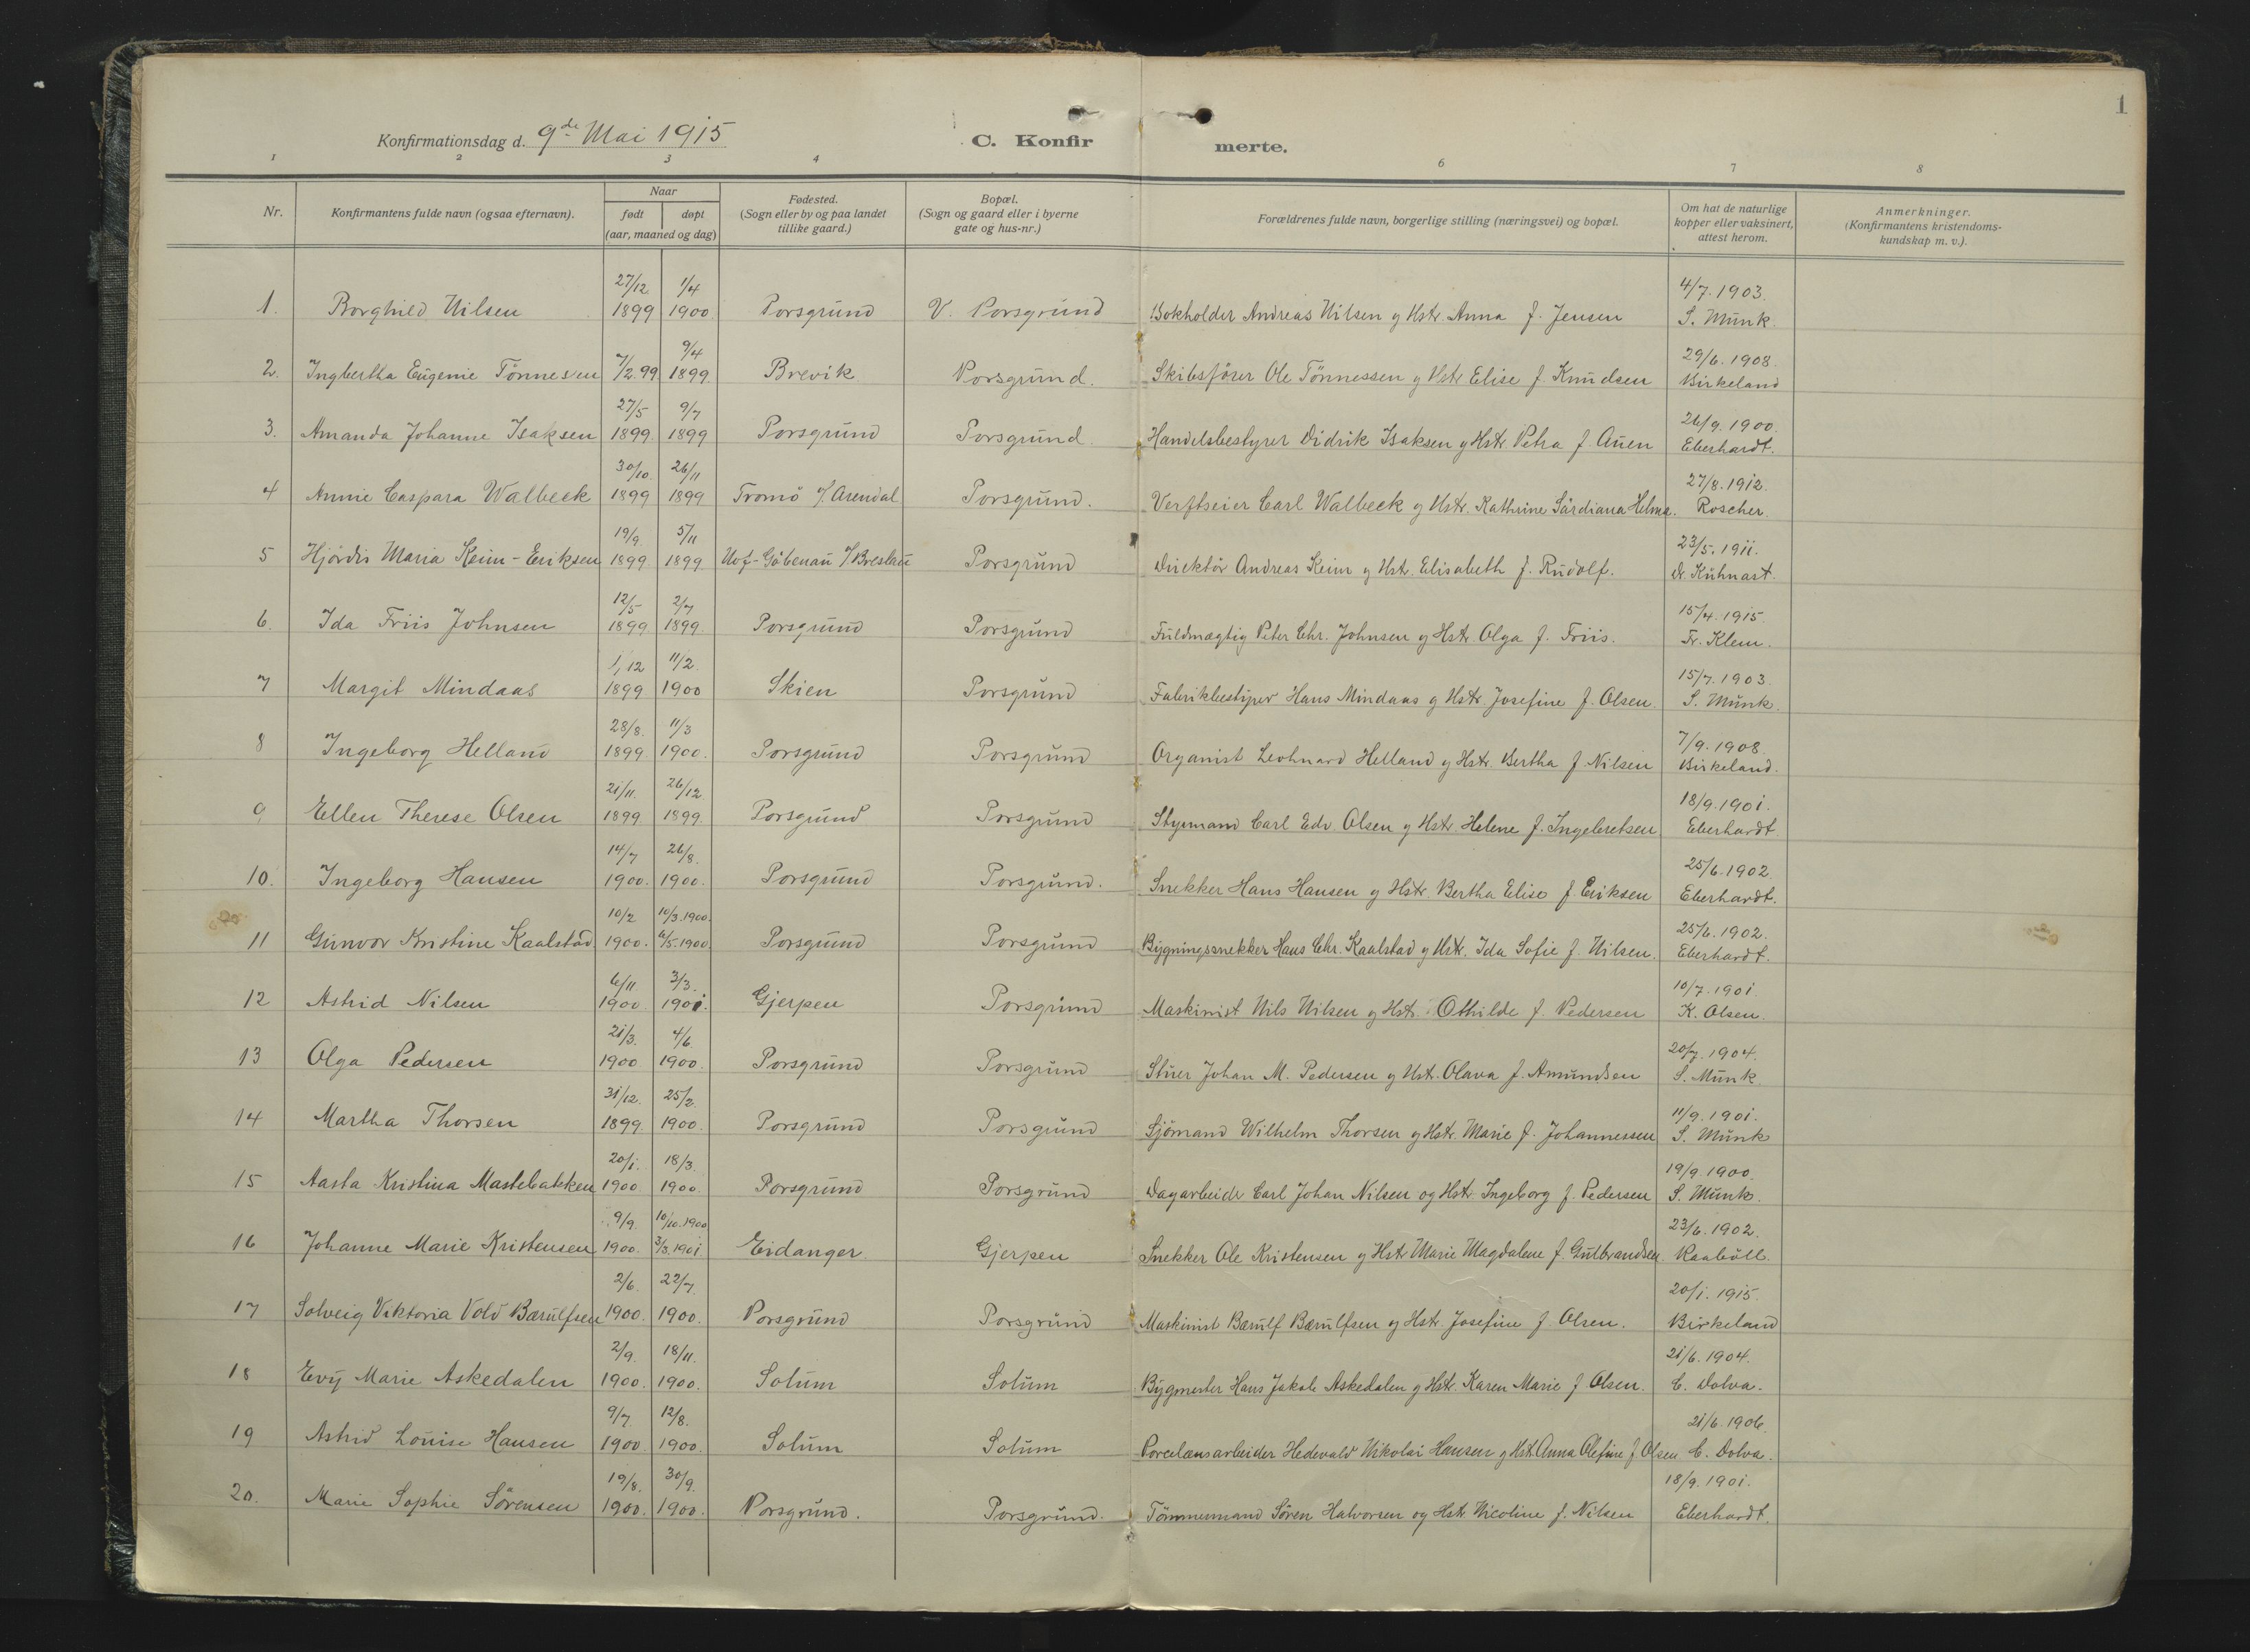 1
Konfirmationsdag d. 9de Mai 1915
C. Konfirmerte.
1 2 3 4 6 7 8
Nr.
Konfirmantens fulde navn (ogsaa efternavn).
Naar
født døpt
(aar, maaned og dag)
Fødested.
(Sogn eller by og paa landet
tillike gaard.)
Bopæl.
(Sogn og gaard eller i byerne
gate og hus-nr.)
Forældrenes fulde navn, borgerlige stilling (næringsvei) og bopæl.
Om hat de naturlige
kopper eller vaksinert,
attest herom.
Anmerkninger.
(Konfirmantens kristendoms-
kundskap m. v.).
27/12 1/4 4/7. 1903.
1. Borghild Nilsen 1899 1900. Porsgrund V. Porsgrund Bokholder Andreas Nilsen g Hstr. Anna f. Jensen S. Munk.
9/4 29/6. 1908.
2. Ingbertha Eugenie Tönnesen 7/2.99 1899. Brevik Porsgrund. Skibsförer Ole Tönnessen g Hstr Elise f. Knudsen Birkeland
27/5 9/7 26/9. 1900.
3. Amanda Johanne Isaksen 1899. 1899 Porsgrund Porsgrund. Handelsbestyrer Didrik Isaksen g Hstr. Petra f. Auen Eberhardt.
30/10. 26/11 27/8. 1912.
4 Annie Caspara Walbeck 1899 1899 Tromö /. Arendal Porsgrund. Verftseier Carl Walbeck g Hstr. Kathrine Särdiana Helma. Roscher.
19/9. 5/11 23/5. 1911.
5 Hjördis Maria Keim-Eriksen 1899. 1899. Gäbenau /Breslau Porsgrund Direktör Andreas Keim g Hstr. Elisabeth f. Rudolf. Dr. Kühnast.
12/5 2/7 15/4. 1915.
6. Ida Friis Johnsen 1899. 1899. Porsgrund Porsgrund Fuldmægtig Peter Chr. Johnsen g Hstr. Olga f. Friis. Fr. Klem.
1/12 11/2. 15/7. 1903.
7 Margit Mindaas 1899 1900 Skien Porsgrund Fabrikbestyrer Hans Mindaas g Hstr. Josefine f. Olsen. S. Munk.
28/8. 11/3 7/9. 1908.
8 Ingeborg Helland 1899. 1900. Porsgrund Porsgrund Organist Leohnard Helland g Hstr. Bertha f. Nilsen Birkeland.
21/11. 26/12. 18/9. 1901.
9 Ellen Therese Olsen 1899 1899. Porsgrund Porsgrund Styrmand Carl Edv. Olsen g Hstr Helene f. Ingebretsen Eberhardt
14/7 26/8. 25/6. 1902.
10. Ingeborg Hansen 1900. 1900. Porsgrund Porsgrund. Snekker Hans Hansen g Hstr. Bertha Elise f. Eriksen Eberhardt.
10/2 10/3.1900. 25/6. 1902.
11 Gunvor Kristine Kaalstad 1900. 6/5.1900. Porsgrund Porsgrund Bygningssnekker Hans Chr. Kaalstad g Hstr. Ida Sofie f. Nilsen. Eberhardt.
6/11 3/3. 10/7. 1901.
12 Astrid Nilsen 1900. 1901. Gjerpen Porsgrund Maskinist Nils Nilsen g Hstr. Othilde f. Pedersen K. Olsen.
21/3. 4/6. 20/7. 1904.
13 Olga Pedersen 1900 1900. Porsgrund Porsgrund Stuer Johan M. Pedersen g Hstr. Olava f. Amundsen S. Munk.
31/12. 25/2. 11/9. 1901.
14 Martha Thorsen 1899 1900. Porsgrund Porsgrund Sjömand Wilhelm Thorsen g Hstr. Marie f. Johannessen S. Munk
20/1. 18/3. 19/9. 1900.
15 Aasta Kristina Mastebakken 1900. 1900. Porsgrund Porsgrund Dagarbeide Carl Johan Nilsen og Hstr. Ingeborg f. Pedersen S. Munk.
9/9. 10/10.1900 23/6. 1902.
16 Johanne Marie Kristensen 1900. 3/3.1901. Eidanger. Gjerpen Snekker Ole Kristensen g Hstr Marie Magdalene f. Gulbrandsen Raaböll.
2/6. 22/7. 20/1. 1915.
17 Solveig Viktoria Vold Bærulfsen 1900. 1900. Porsgrund Porsgrund Maskinist Bærulf Bærulfsen g Hstr. Josefine f. Olsen. Birkeland
2/9. 18/11. 21/6. 1904.
18 Evy Marie Askedalen 1900. 1900. Solum Solum Bygmester Hans Jakob Askedalen g Hstr. Karen Marie f Olsen. C. Dolva.
9/7. 12/8. 21/6. 1906.
19 Astrid Louise Hansen 1900. 1900. Solum Solum Porcelænsarbeider Hedevald Nikolai Hansen g Hstr. Anna Olefine f Olsen C. Dolva.
19/8. 30/9. 18/9. 1901.
20. Marie Sophie Sörensen 1900. 1900. Porsgrund. Porsgrund. Tömmermand Sören Halvorsen og Hstr. Nicoline f. Nilsen Eberhardt.